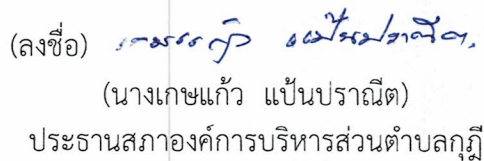 (ลงชื่อ) เกษแก้ว แป้นปราณีต
(นางเกษแก้ว แป้นปราณีต)
ประธานสภาองค์การบริหารส่วนตำบลกุฎี